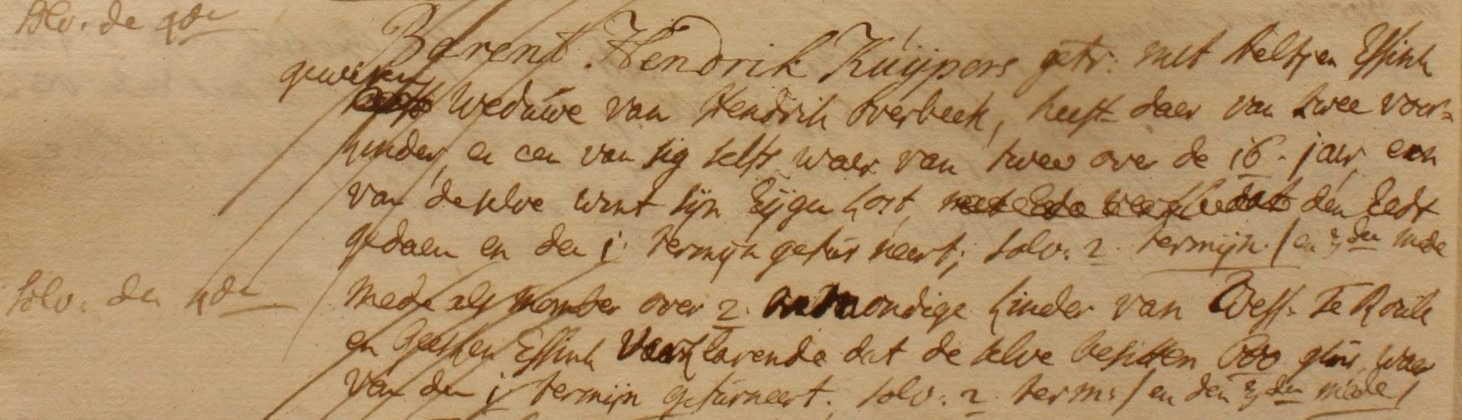 solv. de 4de
Barent Hendrik Kuijpers getr. met Aeltjen Essink
gewesen
Weduwe van Hendrik Overbeek, heeft daer van twee voor-
kinder, en een van sig selfs waer van twee over de 16. jaer een
van deselve wint sijn Eijgen kost, den Eedt
gedaen en den i termijn gefurneert; solv. 2. termijn. / en 3den mede
solv. den 4den
mede als momber over 2. onmondige kinder van Wess. Te Roile
en Geesken Essink verklarende dat de selve besitten 600 guns, waer
van den i termijn gefurneert. solv. 2. term: / en den 3den mede /